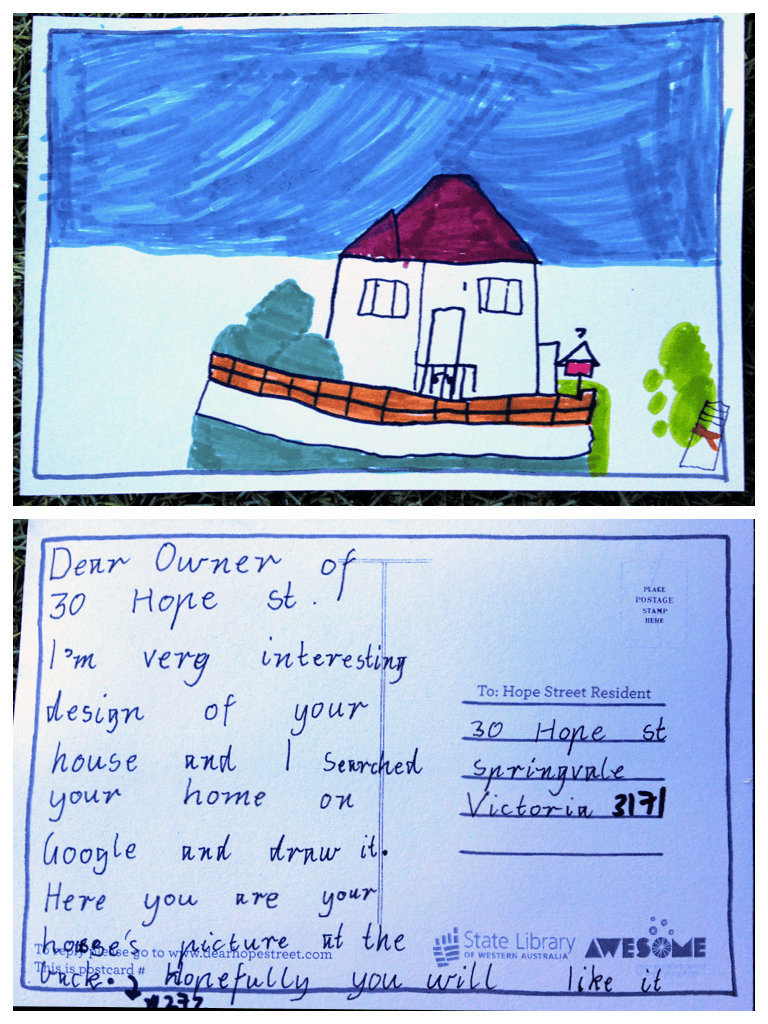 Dear Owner of
30 Hope st.
I'm very interesting
design of your
house and I searched
your home on
Google and draw it.
Here you are your
house's picture at the
back. Hopefully you will like it
To reply please go to www.dearhopestreet.com
This is postcard #
#277
PLACE
POSTAGE
STAMP
HERE
To: Hope Street Resident
30 Hope st
Springvale
Victoria 3171
State Library
OF WESTERN AUSTRALIA
AWESOME